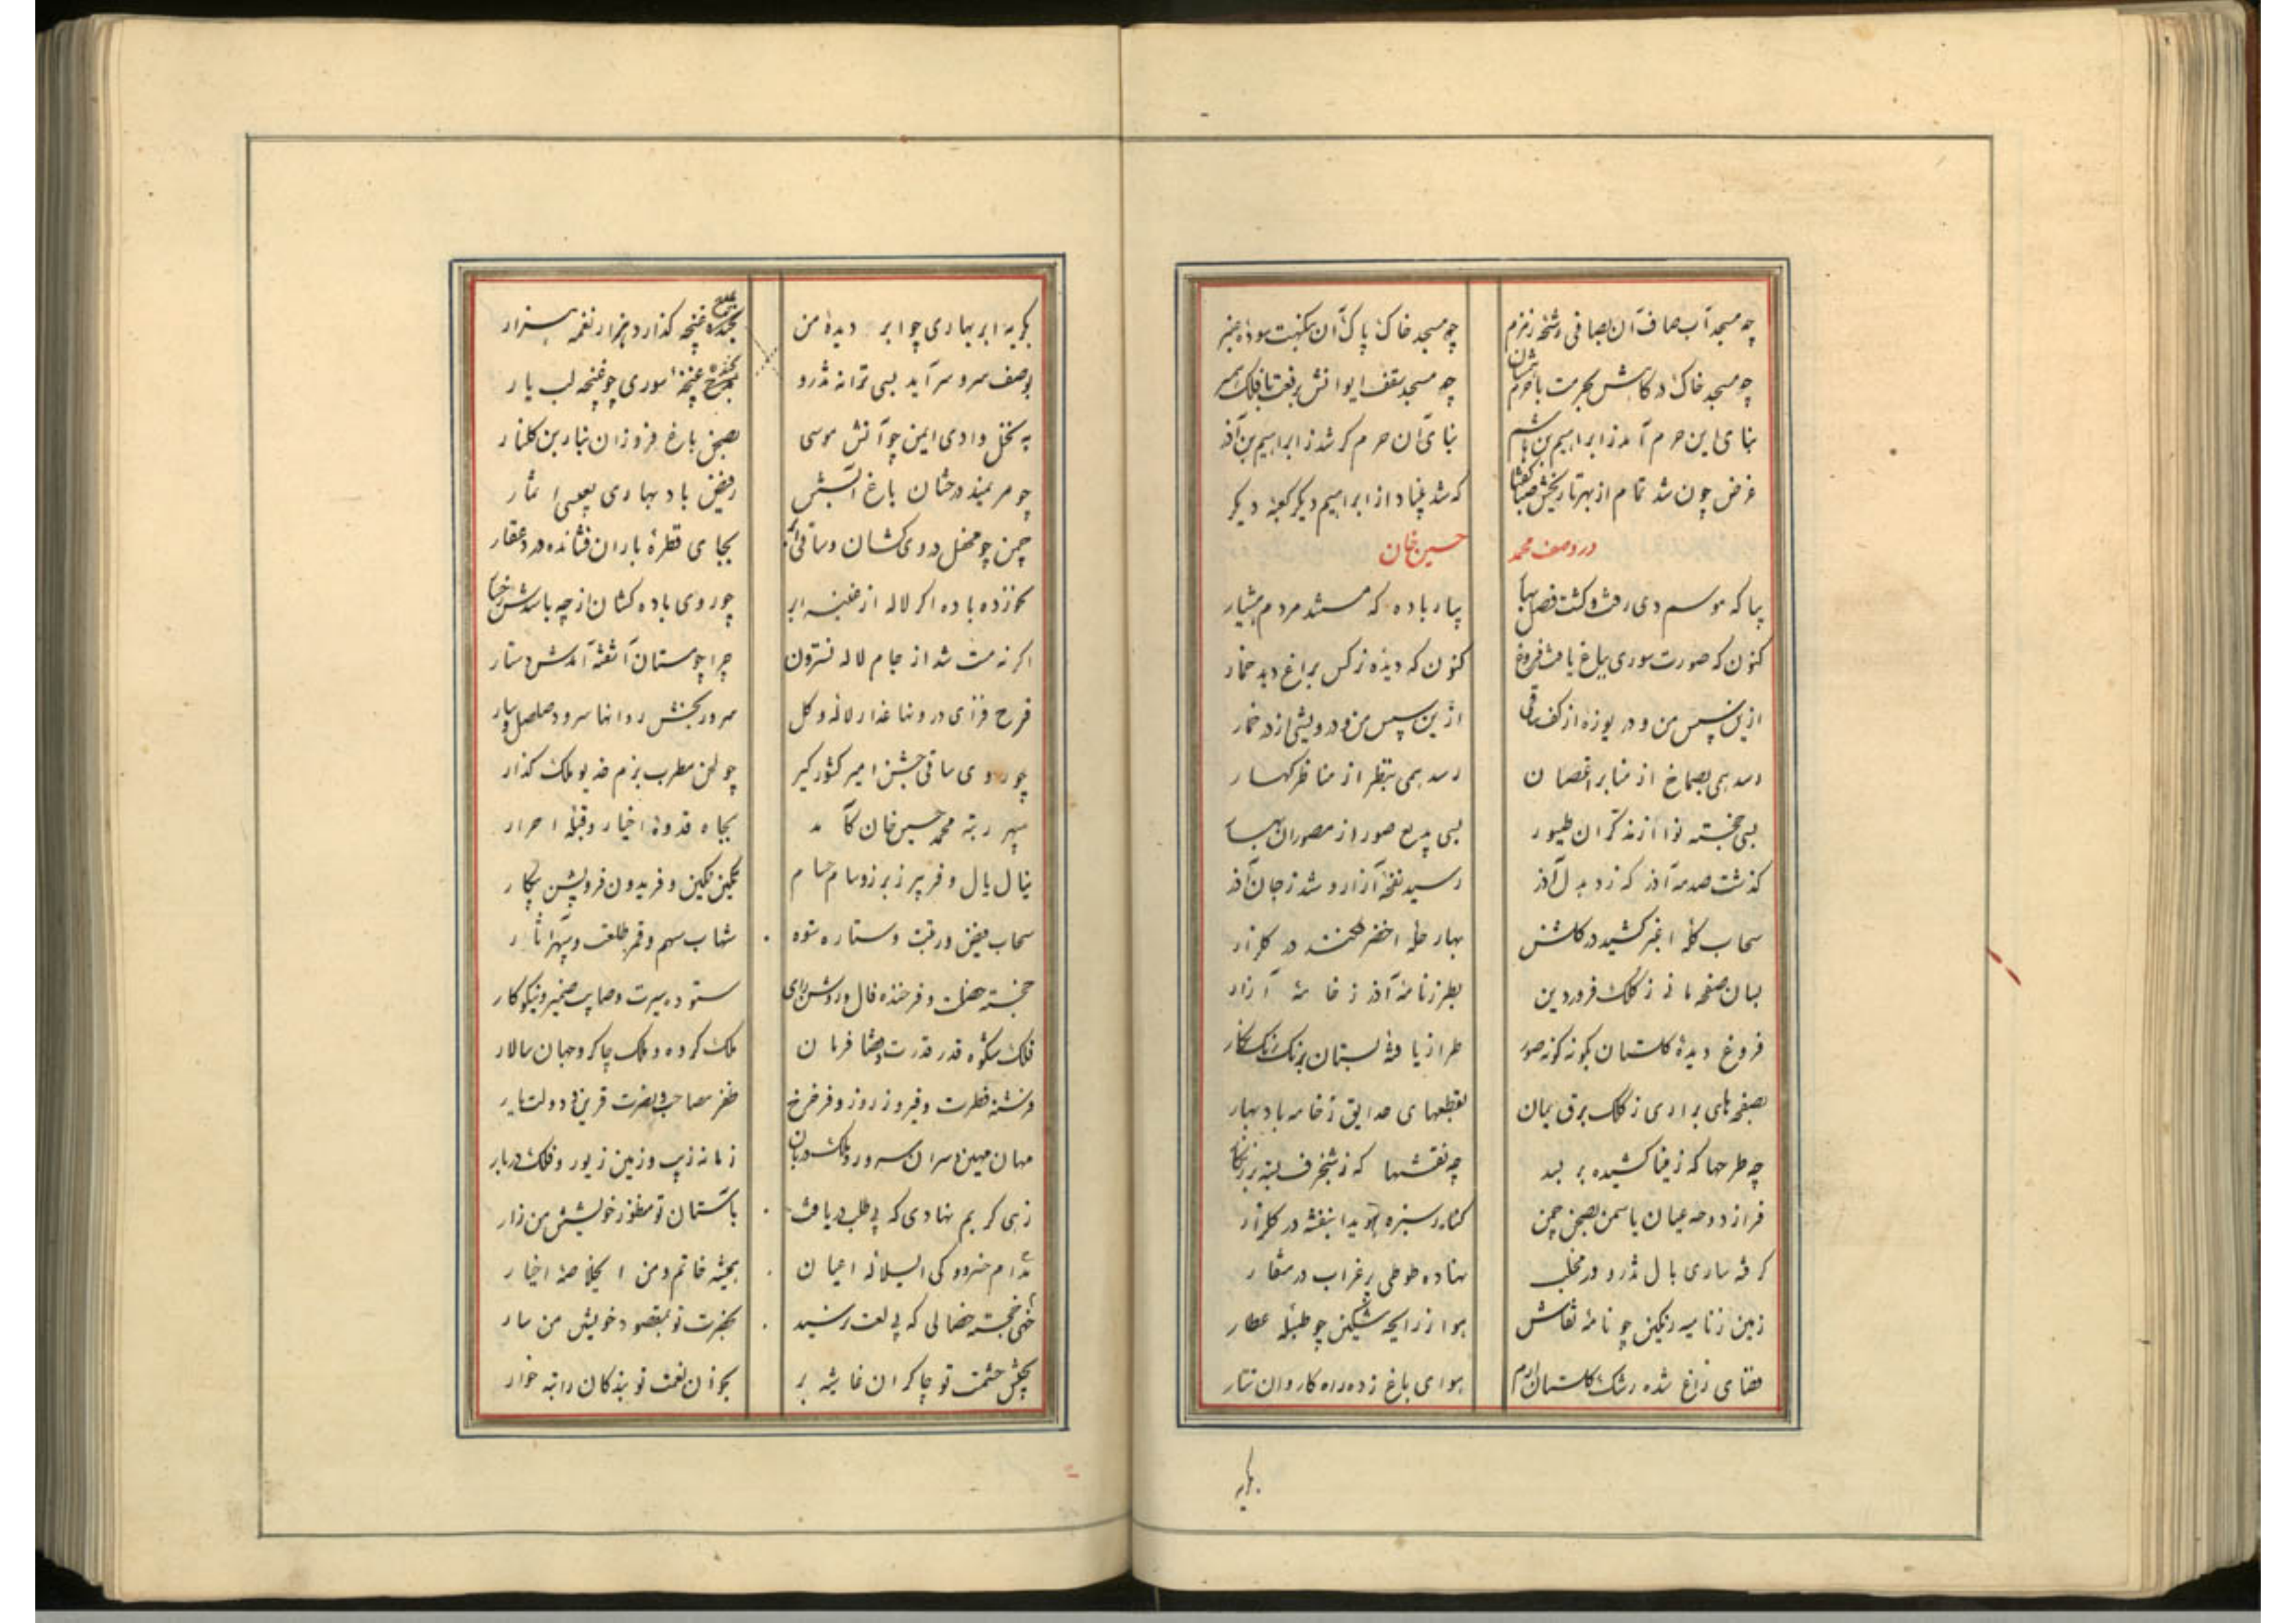 چه مسجد آب صاف آن بصافی رشحه زمزم
چو مسجد خاک پاک آن بنکهت سوده عنبر
چو مسجد خاک درگاهش بحرمت با حرم
چه مسجد سقف ایوانش برفعت با فلک همسر
بنای این حرم آمد ز ابراهیم بن هاشم
بنای آن حرم گر شد ز ابراهیم بن آذر
غرض چون شد تمام از بهر تاریخش صبا گفتا
که شد بنیاد از ابراهیم دیگر کعبهٔ دیگر
در وصف محمد
حسین خان
بیا که موسم دی رفت و گشت فصل بهار
بیار باده که مستند مردم هشیار
کنون که صورت سوری بباغ یافت فروغ
کنون که دیده نرکس براغ دید خمار
ازین سپس من و دریوزه از کف ساقی
ازین سپس من و درویشی از در خمار
رسد همی بصماخ از منابر اغصان
رسد همی بنظر از مناظر کهسار
بسی خجسته نوا از مذکران طیور
بسی بدیع صور از مصوران بهار
گذشت صدمه آذر که زد بدل آذر
رسید نفخه آزار و شد ز جان آذر
سحاب کله اغبر کشید در گلشن
بهار حله اخضر فکند در گلزار
بسان صفحه مانی ز کلک فروردین
بطرز نامه آذر ز خامهٔ آزار
فروغ دیدهٔ گلستان بگونه گونه صور
طراز یافته بستان برنک رنک نکار
بصفحه های براری ز کلک برق یمان
بقطعهای حدایق ز خامه باد بهار
چه طرحها که ز مینا کشیده بر بسد
چه نقشها که ز شنجرف بسته بر زنگار
فراز دوحه عیان یاسمن بصحن چمن
کنار سبزه هویدا بنفشه در گلزار
گرفته ساری بال تذرو در مخلب
نهاده طوطی پر غراب در منقار
زمین ز نامیه رنگین چو نامهٔ نقاش
هوا ز رایحه مشکین چو طبلهٔ عطار
فضای راغ شده رشک گلستان ارم
هوای باغ زده راه کاروان تتار
بگریه
بگریه ابر بهاری چو ابر دیدهٔ من
بخنده غنچه گذارد هزار نغمه هزار
بوصف سرو سراید بسی ترانه تذرو
غنچهٔ سوری چو غنچه لب یار
به نخل وادی ایمن چو آتش موسی
بصحن باغ فروزان ز نار بن گلنار
چو مریمند درختان باغ آبستن
ز فیض باد بهاری بعیسی اثمار
چمن چو محفل دردی کشان و ساقی ابر
بجای قطرهٔ باران فشانده درد عقار
نخورده باده اگر لاله از خزینه ابر
چو روی باده کشان از چه باشدش رخسار
اگر نه مست شد از جام لاله نسترون
چرا چو مستان آشفته آمدش دستار
فرح فزای درونها عذار لاله و گل
سرور بخش روانها سرود صلصل و سار
چو روی ساقی جشن امیر کشور گیر
چو لحن مطرب بزم خدیو ملک گذار
سپهر رتبه محمد حسین خان کامد
بجاه قدوهٔ اخیار و قبلهٔ احرار
ینال یال و فریبرز برز و سام حسام
تکین نگین و فریدون فر و پشن پیکار
سحاب فیض و رتبت و ستاره ستوه
شهاب سهم و قمر طلعت و سپهر آثار
خجسته خصلت و فرخنده فال و روشن رای
ستوده سیرت و صایب ضمیر و نیکو کار
فلک شکوه قدر قدرت و قضا فرمان
ملک گروه و ملک چاکر و جهان سالار
فرشته فطرت و فیروز روز و فر فرخ
ظفر مصاحب و نصرت قرین و دولت یار
مهان مهین و سران سرور و ملک دربان
زمانه زیب و زمین زیور و فلک دربار
زهی کریم نهادی که بی طلب دریافت
باستان تو منظور خویشتن من زار
ندام خسرو کی ایسلانه اعیان
همیشه خاتم ومن اخلاصهٔ اخیار
خهی خجسته خصالی که بی تعب رسید
بحضرت تو بمقصود خویش من سار
بجیش حشمت تو چاکران غاشیه بر
بخوان نعمت تو بندگان راتبه خوار